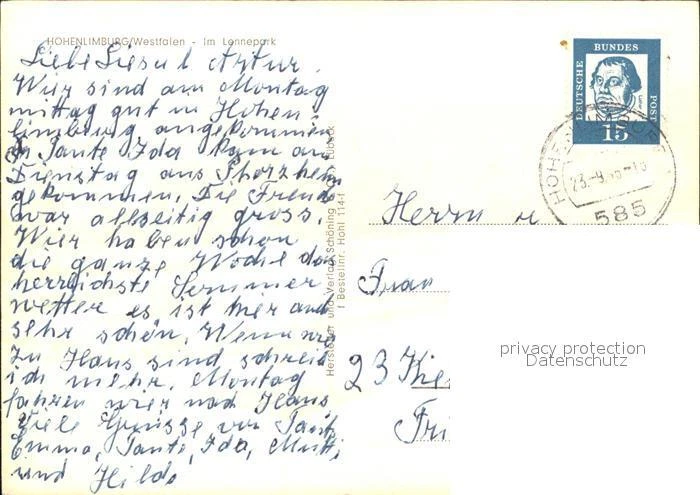 HOHENLIMBURG/Westfalen - Im Lennepark
Liebe Liesel u Artur.
Wir sind am Montag
mittag gut in Hohen
limburg angekommen
Tante Ida kam am
Dienstag aus Pforzheim
gekommen. Die Freude
war allseitig gross.
Wier haben schon
die ganze Woche das
herrlichste Sommer
wetter es ist hier auch
sehr schön. Wenn wir
zu Haus sind schreib
ich mehr. Montag
fahren wier nach Haus
Viele Grüsse von Tante
Emma, Tante, Ida, Mutti,
und Hilde
Hersteller und Verlag Schöning Lübeck
Bestellnr. Hohl 114
DEUTSCHE BUNDES POST
Luther
15
HOHENLIMBURG
585
Herrn u
Frau
23 Kie
Fri
privacy protection
Datenschutz